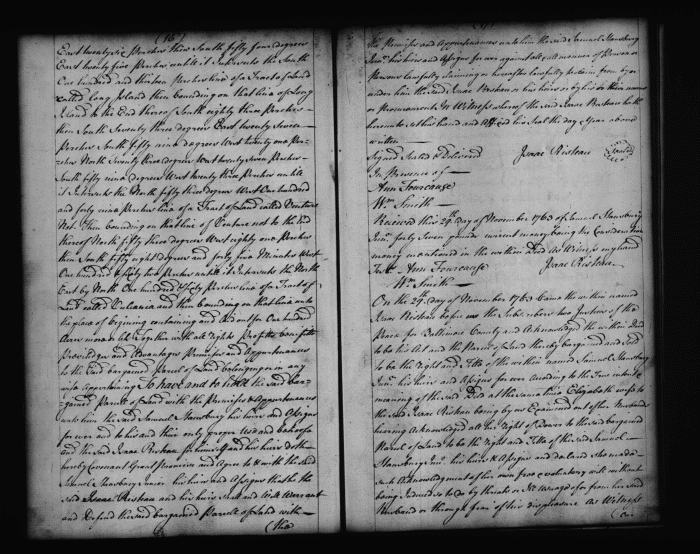 (16)
East twenty six Perches then South fifty four degrees
East twenty five Perches until it Intersects the South
One hundred and thirteen Perches line of a Tract of Land
called Long Island then bounding on that line of Long
Island to the End thereof South eighty three Perches
then South Seventy three degrees East twenty Seven
Perches South fifty nine degrees West twenty one Per-
ches North Seventy three degrees West twenty Seven Perches
South fifty nine degrees West twenty three Perches until
it Intersects the North fifty three degrees West One hundred
and forty nine Perches line of a Tract of Land called Venture
Not then bounding on that line of Venture not to the End
thereof North fifty three degrees West eighty one Perches
then South fifty eight degrees and forty five Minutes West
One hundred & Sixty two Perches until it Intersects the North
East by North One hundred & Sixty Perches line of a Tract of
Land called and then bounding on that line unto
the place of Begining containing and laid out for One hundred
Acres more or less Together with all Rights Profits benefits
Priviledges and Advantages Premises and Appurtenances
to the said bargained Parcel of Land belonging or in any
wise Appertaining To have and to hold the said bar-
gained Parcel of Land with the Premises & Appurtenances
unto him the said Samuel Stansbury his heirs and Assigns
for ever and to his and their only proper Use and behoofe
and the said Isaac Risteau for himself and his heirs doth
hereby Covenant Grant Promise and Agree to & with the said
Samuel Stansbury Junior his heirs and Assigns that he the
said Isaac Risteau and his heirs shall and Will Warrant
and Defend the said bargained Parcel of Land with
(the
the Premises and Appurtenances unto him the said Samuel Stansbury
Junr. his heirs and Assigns for ever against all & all manner of Person or
Persons Lawfully claiming or hereafter Lawfully to claim from by or
under him the said Isaac Risteau or his heirs or by his or their means
or Procurement In Witness whereof the said Isaac Risteau hath
hereunto set his hand and Affixed his Seal the day & Year above
written
Signed Sealed & Delivered Isaac Risteau
In Presence of
Ann Fourcause
Wm. Smith
Received this 29th. day of November 1763 of Samuel Stansbury
Junr. forty Seven pounds current money being the Consideration
money mentioned in the within Deed As Witness my hand
Test Ann Fourcause Isaac Risteau
Wm. Smith
On the 29th. day of November 1763 Came the within named
Isaac Risteau before us the Subscribers two Justices of the
Peace for Baltimore County and Acknowledged the within Deed
to be his Act and the Parcel of Land thereby bargained and Sold
to be the Right and Title of the within named Samuel Stansbury
Junr. his heirs and Assigns for ever According to the True intent &
meaning of the said Deed At the same time Elizabeth wife to
the said Isaac Risteau being by us Examined out of her Husbands
hearing Acknowledged all her Right of Dower to the said bargained
Parcel of Land to be the Right and Title of the said Samuel
Stansbury Junr. his heirs & Assigns and declared she made
such Acknowledgment of her own free & voluntary will without
being Induced so to do by threats or Ill usage of or from her said
Husband or through fear of his displeasure As Witness